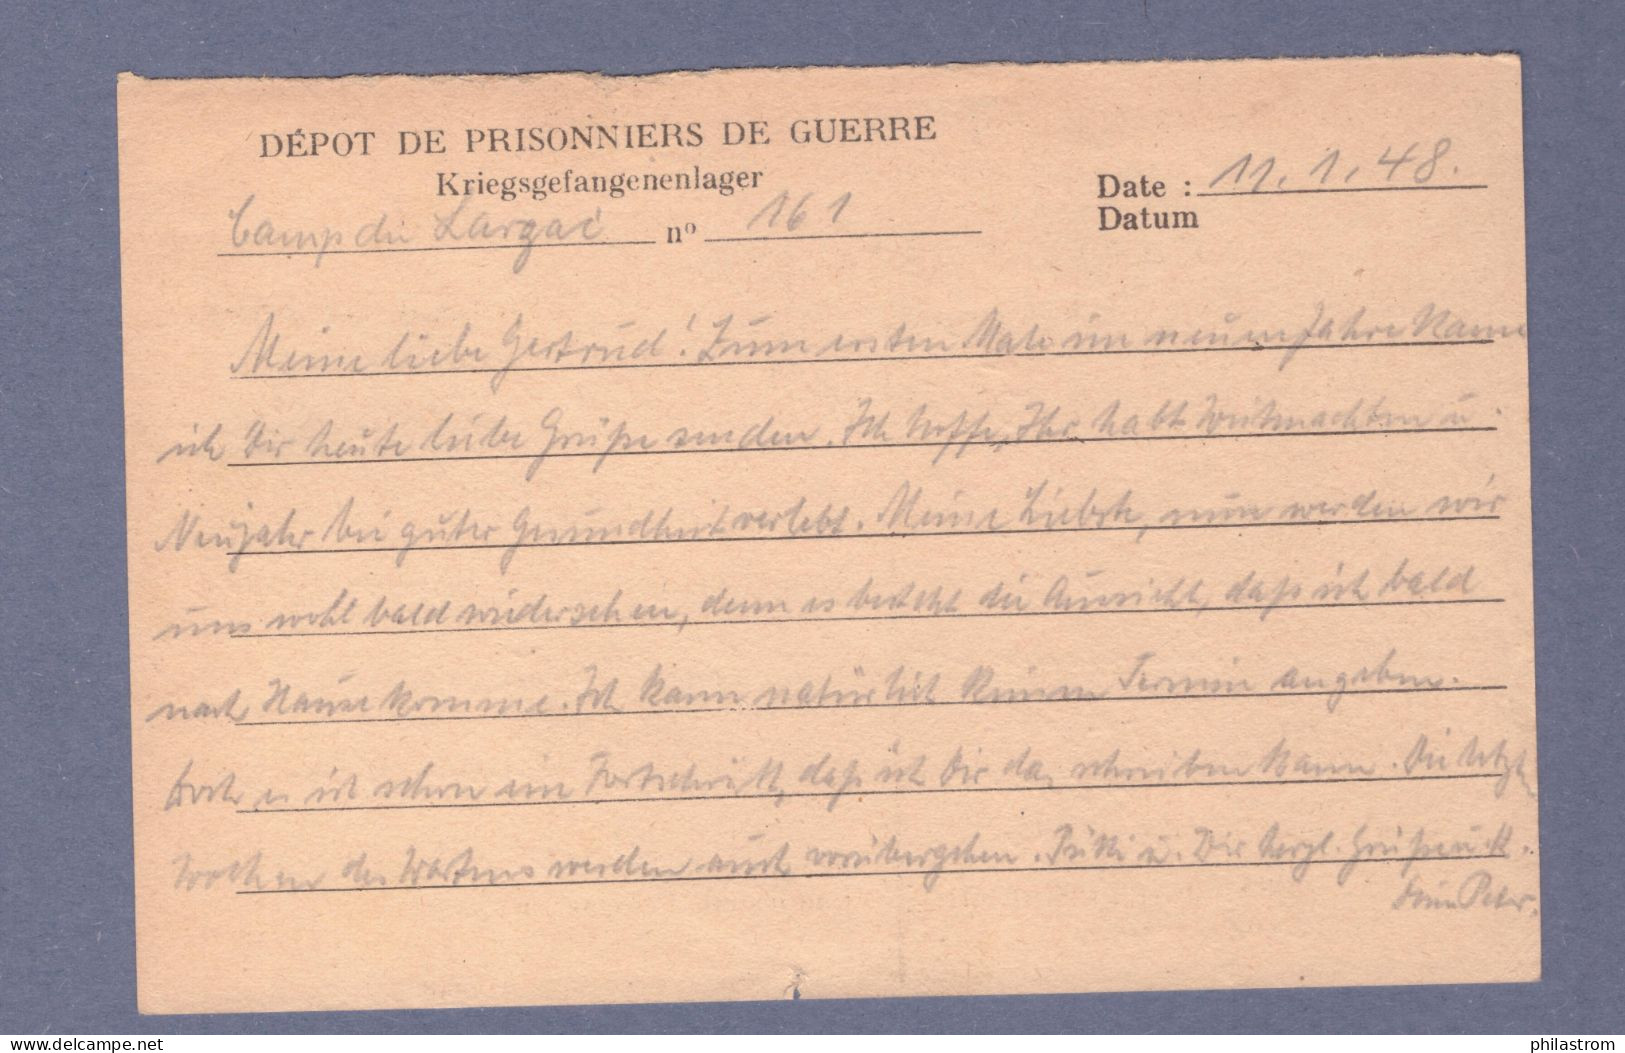 DÉPOT DE PRISONNIERS DE GUERRE
Kriegsgefangenenlager
Camp du Largac nº 161
Date : 11.1.48.
Datum
Meine liebe Gertrud! Zum ersten Male im neuen Jahre kann
ich Dir heute liebe Grüße senden. Ich hoffe, Ihr habt Weihnachten u.
Neujahr bei guter Gesundheit verlebt. Meine Liebste, nun werden wir
uns wohl bald wiedersehen, denn es besteht die Aussicht, daß ich bald
nach Hause komme. Ich kann natürlich keinen Termin angeben.
Doch es ist schon ein Fortschritt, daß ich Dir das schreiben kann. Die letzten
Wochen des Wartens werden auch vorübergehen. u. Dir herzl. Grüße u. K.
Dein Peter.
philastrom
delcampe.net